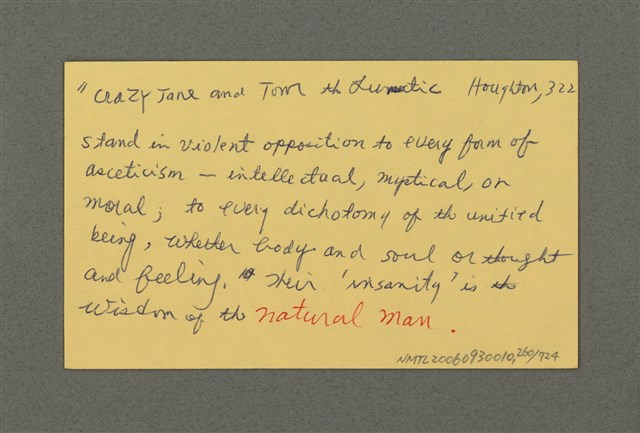 " Crazy Jane and Tom th Lunatic Houghton, 322
stand in violent opposition to every form of
asceticism — intellectual, mystical, or
moral; to every dichotomy of th unified
being, whether body and soul or thought
and feeling. Their 'insanity' is th
wisdom of th natural man.
NMTL20060930010,260/724